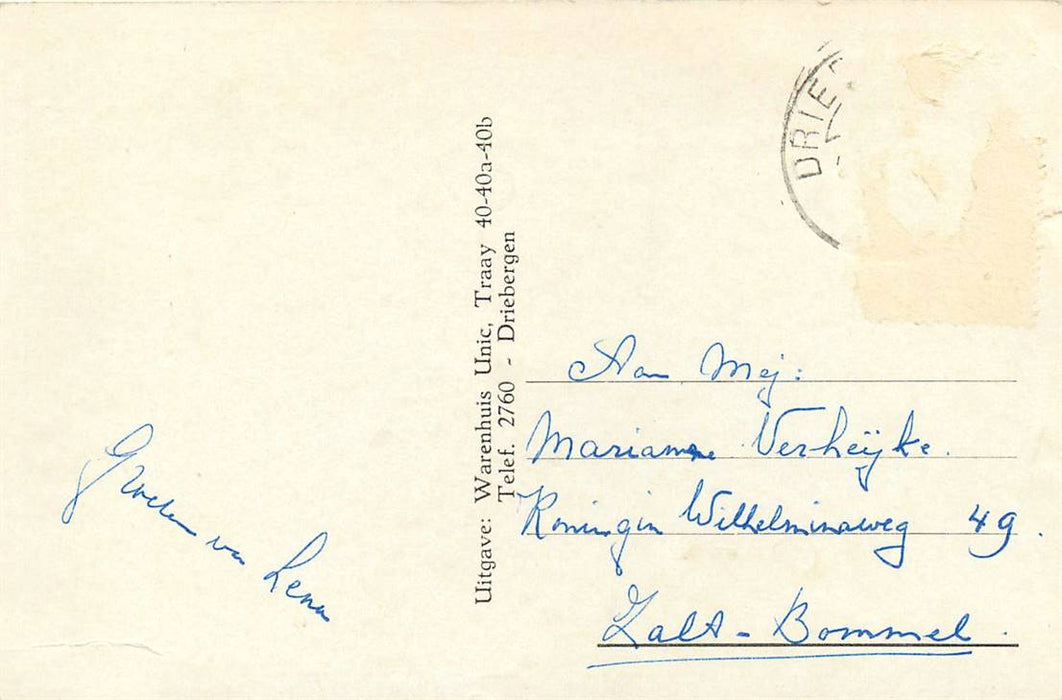 Groeten van Lena
Uitgave: Warenhuis Unic, Traay 40-40a-40b
Telef. 2760 - Driebergen
DRIE
Aan Mej:
Marianne Verheijke.
Koningin Wilhelminaweg 49.
Zalt-Bommel.